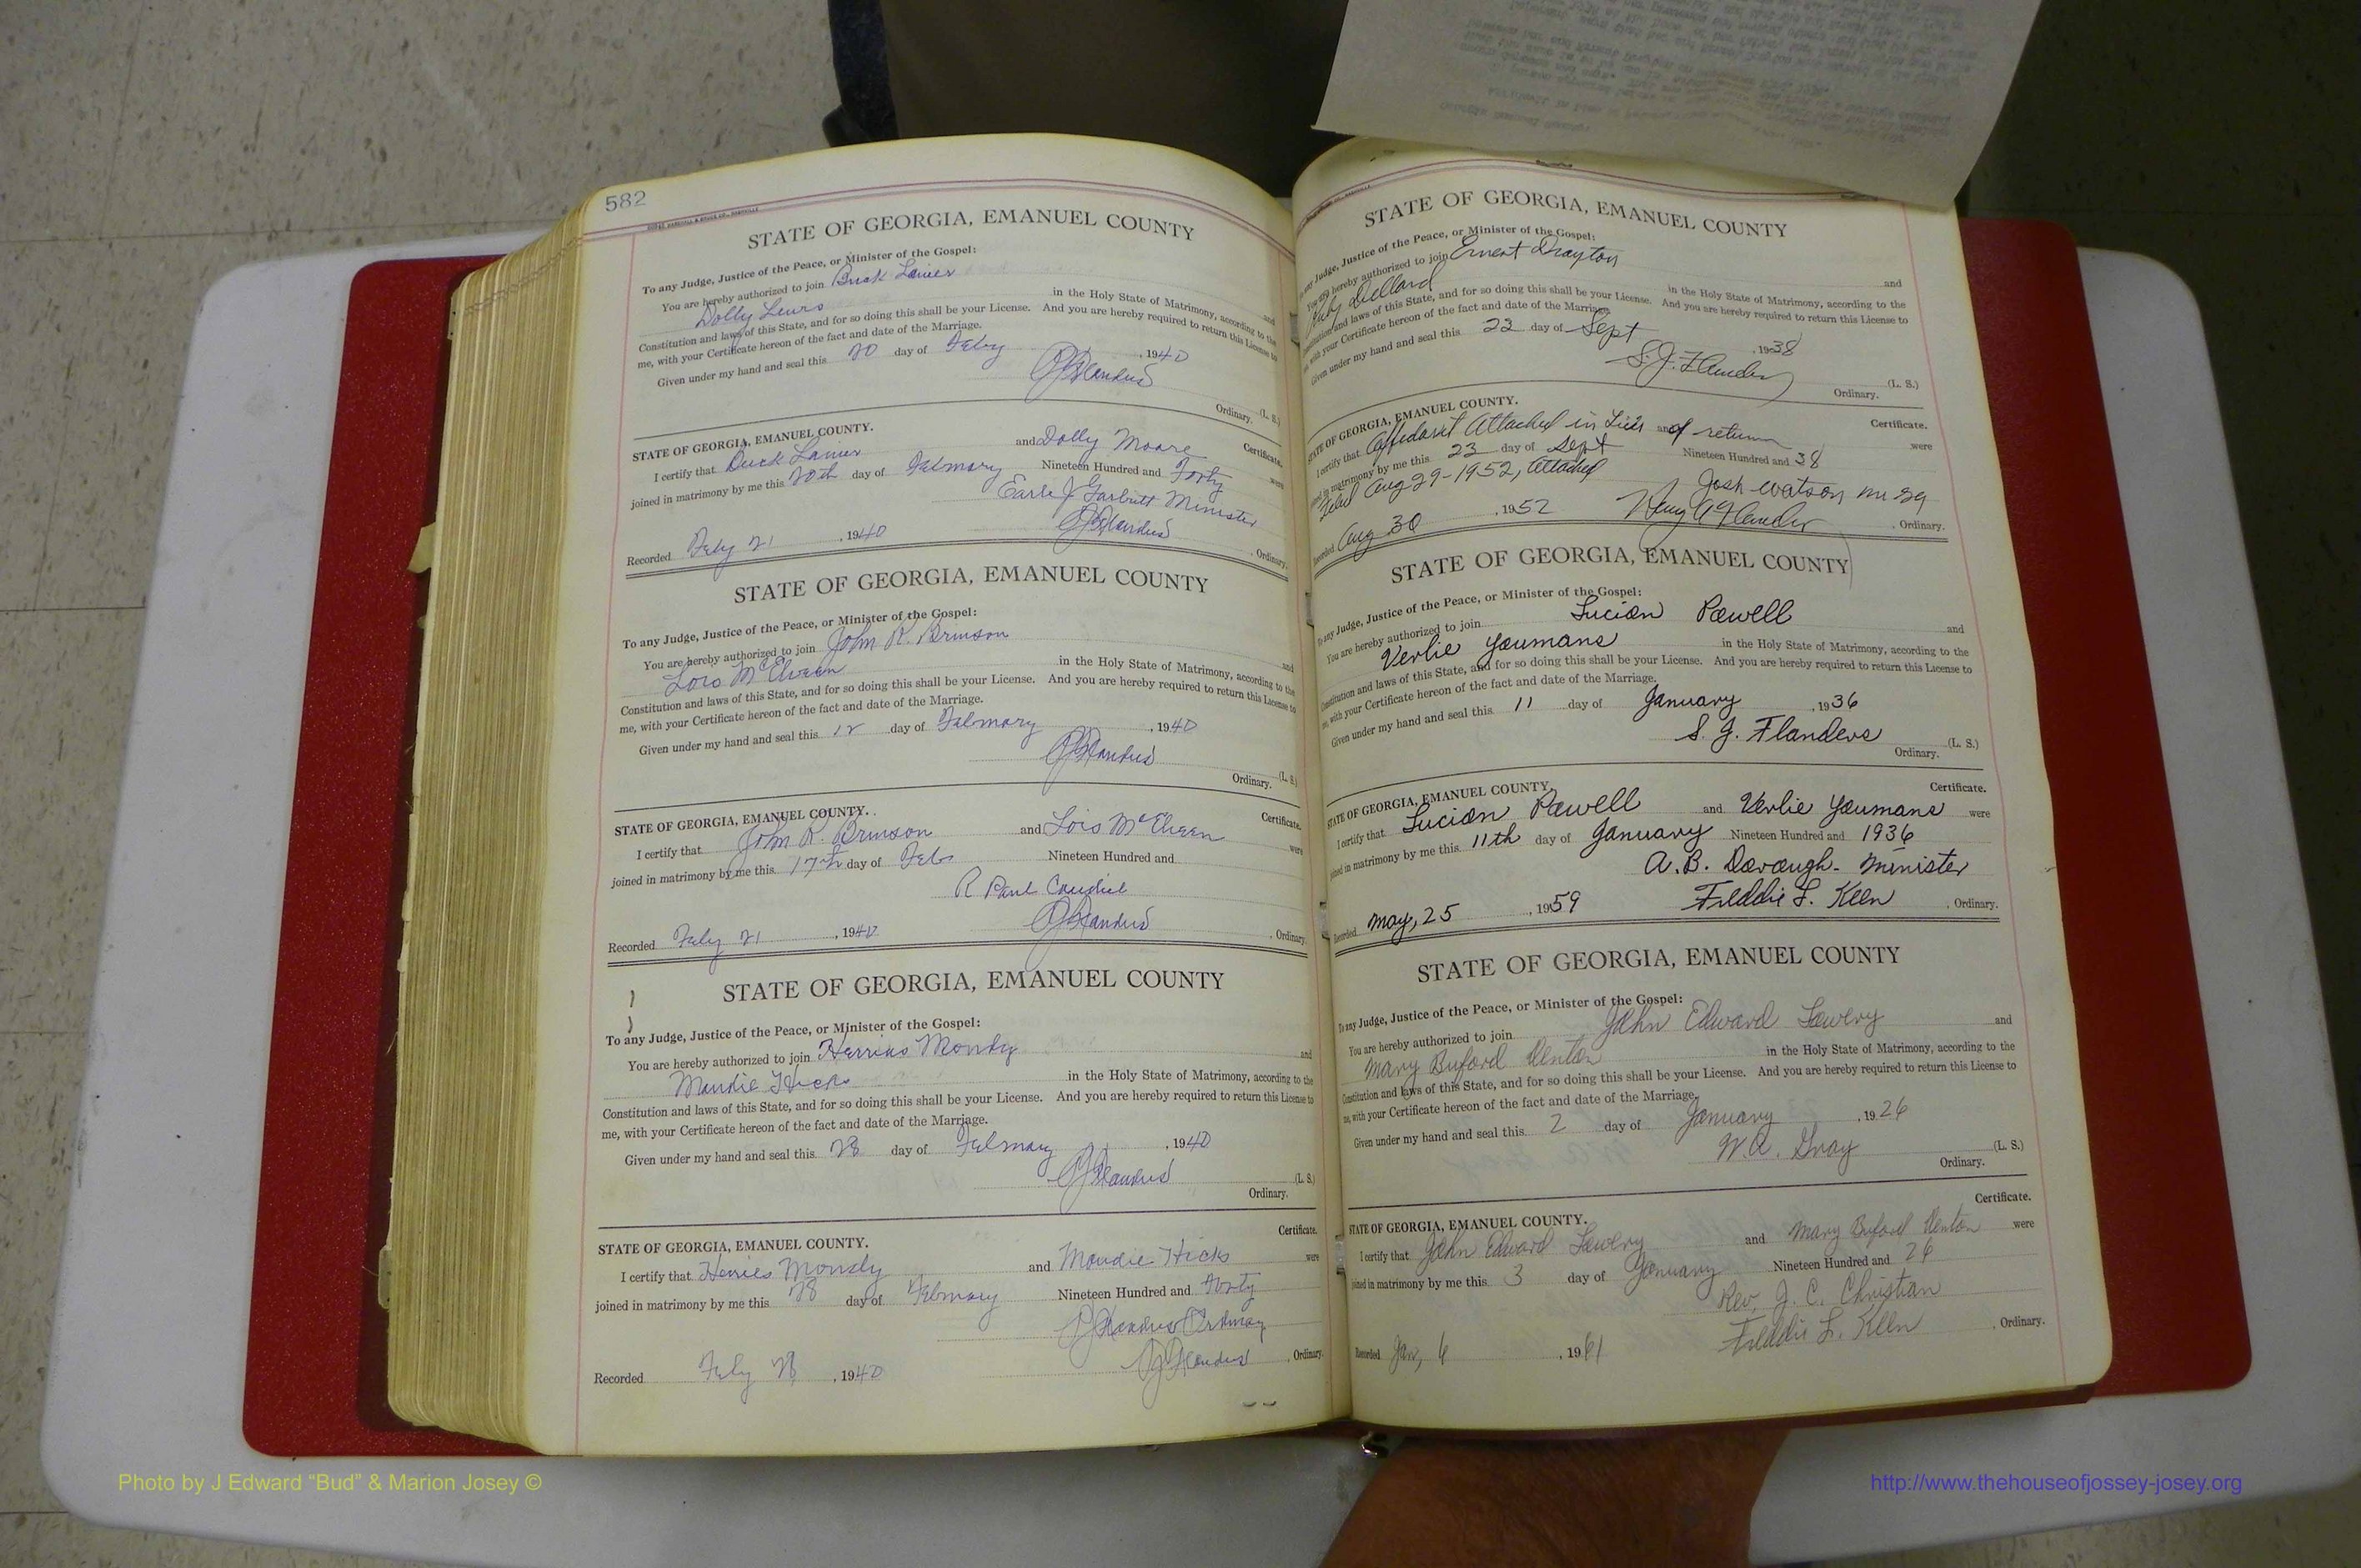 582
STATE OF GEORGIA, EMANUEL COUNTY
To any Judge, Justice of the Peace, or Minister of the Gospel:
You are hereby authorized to join Buck Lanier and
Dolly in the Holy State of Matrimony, according to the
Constitution and laws of this State, and for so doing this shall be your License. And you are hereby required to return this License to
me, with your Certificate hereon of the fact and date of the Marriage.
Given under my hand and seal this 20 day of Feby , 1940
(L. S.)
Ordinary.
STATE OF GEORGIA, EMANUEL COUNTY. Certificate.
I certify that Buck Lanier and Dolly Moore were
joined in matrimony by me this 20th day of February Nineteen Hundred and Forty
Earle J Garbutt Minister
Recorded Feby 21 , 1940 , Ordinary.
STATE OF GEORGIA, EMANUEL COUNTY
To any Judge, Justice of the Peace, or Minister of the Gospel:
You are hereby authorized to join John R. Brinson and
Lois McElveen in the Holy State of Matrimony, according to the
Constitution and laws of this State, and for so doing this shall be your License. And you are hereby required to return this License to
me, with your Certificate hereon of the fact and date of the Marriage.
Given under my hand and seal this 12 day of February , 1940
(L. S.)
Ordinary.
STATE OF GEORGIA, EMANUEL COUNTY. Certificate.
I certify that John R. Brinson and Lois McElveen were
joined in matrimony by me this 17th day of Feb Nineteen Hundred and
R Paul Caudill
Recorded Feby 21 , 1940 , Ordinary.
STATE OF GEORGIA, EMANUEL COUNTY
To any Judge, Justice of the Peace, or Minister of the Gospel:
You are hereby authorized to join Mondy and
Maudie Hicks in the Holy State of Matrimony, according to the
Constitution and laws of this State, and for so doing this shall be your License. And you are hereby required to return this License to
me, with your Certificate hereon of the fact and date of the Marriage.
Given under my hand and seal this 28 day of February , 1940
(L. S.)
Ordinary.
Certificate.
STATE OF GEORGIA, EMANUEL COUNTY.
I certify that Mondy and Maudie Hicks were
joined in matrimony by me this 28 day of February Nineteen Hundred and Forty
Ordinary
Recorded Feby 28 , 1940 , Ordinary.
STATE OF GEORGIA, EMANUEL COUNTY
any Judge, Justice of the Peace, or Minister of the Gospel:
You are hereby authorized to join Ernest Drayton and
Dellard in the Holy State of Matrimony, according to the
Constitution and laws of this State, and for so doing this shall be your License. And you are hereby required to return this License to
me, with your Certificate hereon of the fact and date of the Marriage.
Given under my hand and seal this 22 day of Sept , 1938
S. J. Flanders (L. S.)
Ordinary.
STATE OF GEORGIA, EMANUEL COUNTY. Certificate.
I certify that Affidavit Attached in Lieu and of return were
joined in matrimony by me this 23 day of Sept Nineteen Hundred and 38
Filed Aug 29-1952, Attached Josh Watson
Recorded Aug 30 , 1952 , Ordinary.
STATE OF GEORGIA, EMANUEL COUNTY
To any Judge, Justice of the Peace, or Minister of the Gospel:
You are hereby authorized to join Lucian Powell and
Verlie Youmans in the Holy State of Matrimony, according to the
Constitution and laws of this State, and for so doing this shall be your License. And you are hereby required to return this License to
me, with your Certificate hereon of the fact and date of the Marriage.
Given under my hand and seal this 11 day of January , 1936
S. J. Flanders (L. S.)
Ordinary.
STATE OF GEORGIA, EMANUEL COUNTY. Certificate.
I certify that Lucian Powell and Verlie Youmans were
joined in matrimony by me this 11th day of January Nineteen Hundred and 1936
A. B. Davough - Minister
Recorded May, 25 , 1959 Freddie L. Keen , Ordinary.
STATE OF GEORGIA, EMANUEL COUNTY
To any Judge, Justice of the Peace, or Minister of the Gospel:
You are hereby authorized to join John Edward Lowery and
Mary Buford Denton in the Holy State of Matrimony, according to the
Constitution and laws of this State, and for so doing this shall be your License. And you are hereby required to return this License to
me, with your Certificate hereon of the fact and date of the Marriage.
Given under my hand and seal this 2 day of January , 1926
W. A. Gray (L. S.)
Ordinary.
Certificate.
STATE OF GEORGIA, EMANUEL COUNTY.
I certify that John Edward Lowery and Mary Buford Denton were
joined in matrimony by me this 3 day of January Nineteen Hundred and 26
Rev. J. C. Christian
Recorded Jan, 6 , 1961 Freddie L. Keen , Ordinary.
Photo by J Edward “Bud” & Marion Josey ©
http://www.thehouseofjossey-josey.org